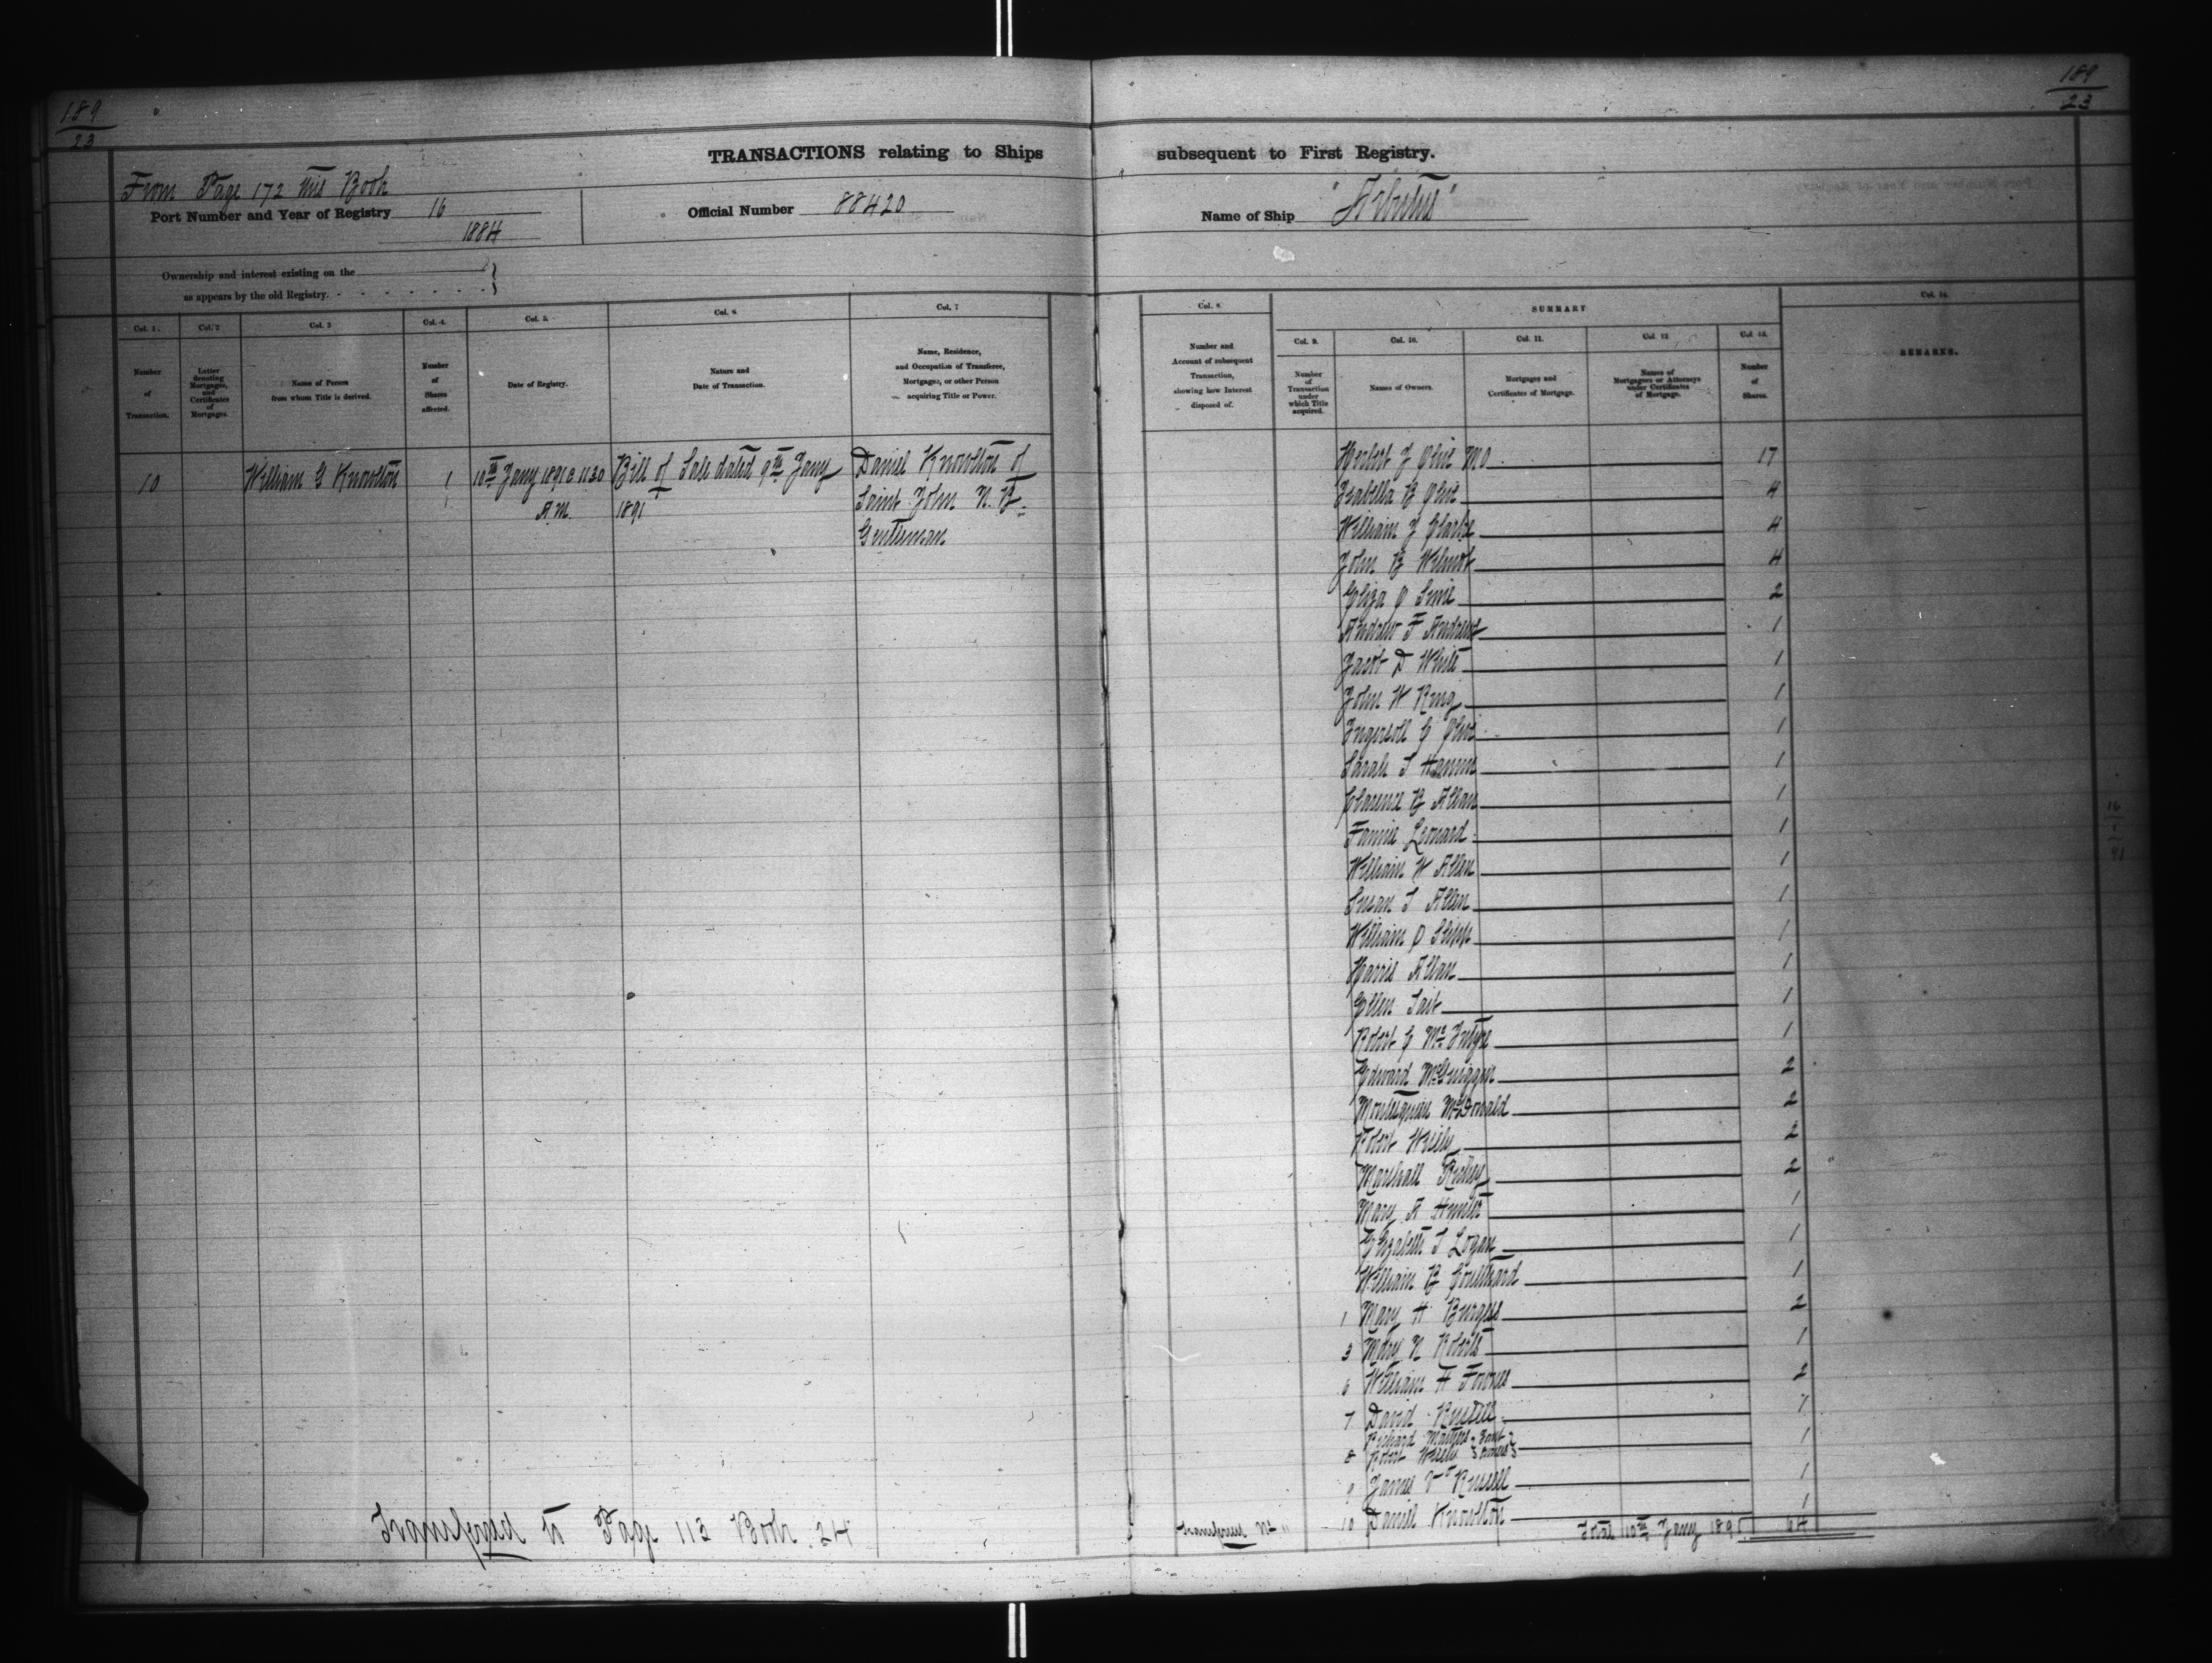 189
23
189
23
TRANSACTIONS relating to Ships subsequent to First Registry.
From Page 172 this Book
Port Number and Year of Registry 16
1884
Official Number 88420
Name of Ship "Arbutus"
Ownership and interest existing on the
as appears by the old Registry.
Col. 1. Col. 2 Col. 3 Col. 4. Col. 5. Col. 6 Col. 7 Col. 8. SUMMARY Col. 14.
Col. 9. Col. 10. Col. 11. Col. 12 Col. 13.
Number
of
Transaction.
Letter
denoting
Mortgages,
and
Certificates
of
Mortgages.
Name of Person
from whom Title is derived.
Number
of
Shares
affected.
Date of Registry.
Nature and
Date of Transaction.
Name, Residence,
and Occupation of Transferee,
Mortgagee, or other Person
acquiring Title or Power.
Number and
Account of subsequent
Transaction,
showing how Interest
disposed of.
Number
of
Transaction
under
which Title
acquired.
Names of Owners.
Mortgages and
Certificates of Mortgage.
Names of
Mortgagees or Attorneys
under Certificates
of Mortgage.
Number
of
Shares.
REMARKS.
10 William G Knowlton 1 10th Jany 1891 @ 11 30 Bill of Sale dated 9th Jany Daniel Knowlton of
A.M. 1891 Saint John N.B.
Gentleman
Herbert J Olive MO 17
Isabella B Olive 4
William J Clarke 4
John B Wilmot 4
Eliza O 2
Andrew F Andrews 1
Jacob D White 1
John W Ring 1
Ingersoll C Olive 1
Sarah S 1
Clarence B Allan 1
Fannie Leonard 1
William W Allen 1
Susan S Allen 1
William O Slipp 1
Harris Allan 1
Ellen Tait 1
Robert C McIntyre 1
Edward McGuiggan 2
Montesquieu McDonald 2
Robert Wisely 2
Marshall 2
Mary A Hunter 1
Elizabeth S Logan 1
William B Coulthard 1
1 Mary H Burgess 2
3 Mary N Roberts 1
6 William H Fownes 2
7 David Russell 1
Richard Joint
8 Robert Wisely owners 1
9 James Russell 1
10 Daniel Knowlton 1
Transferred to Page 113 Book 24
Transferred No "
Total 10th Jany 1891 64